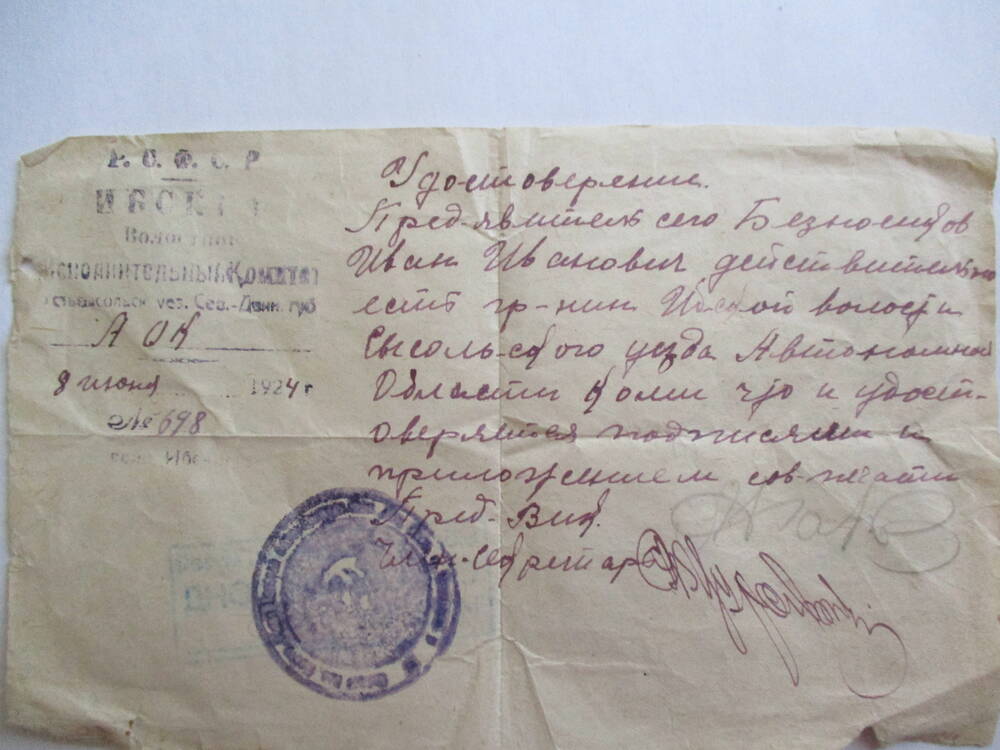 Р. С. Ф. С. Р
ИБСКІЙ
Волостной
Исполнительный Комитет
Устьсысольск уез. Сев.-Двин. губ
А О К
8 июня 1924 г
№ 698
Удостоверение.
Пред-явитель сего Безносиков
Иван Иванович действительно
есть гр-нин Ибской волости
Сысоль-ского уезда Автономной
Области Коми что и удост-
оверяется подписями и
приложением сов-печати
Пред. Вик.
Член-Секретарь